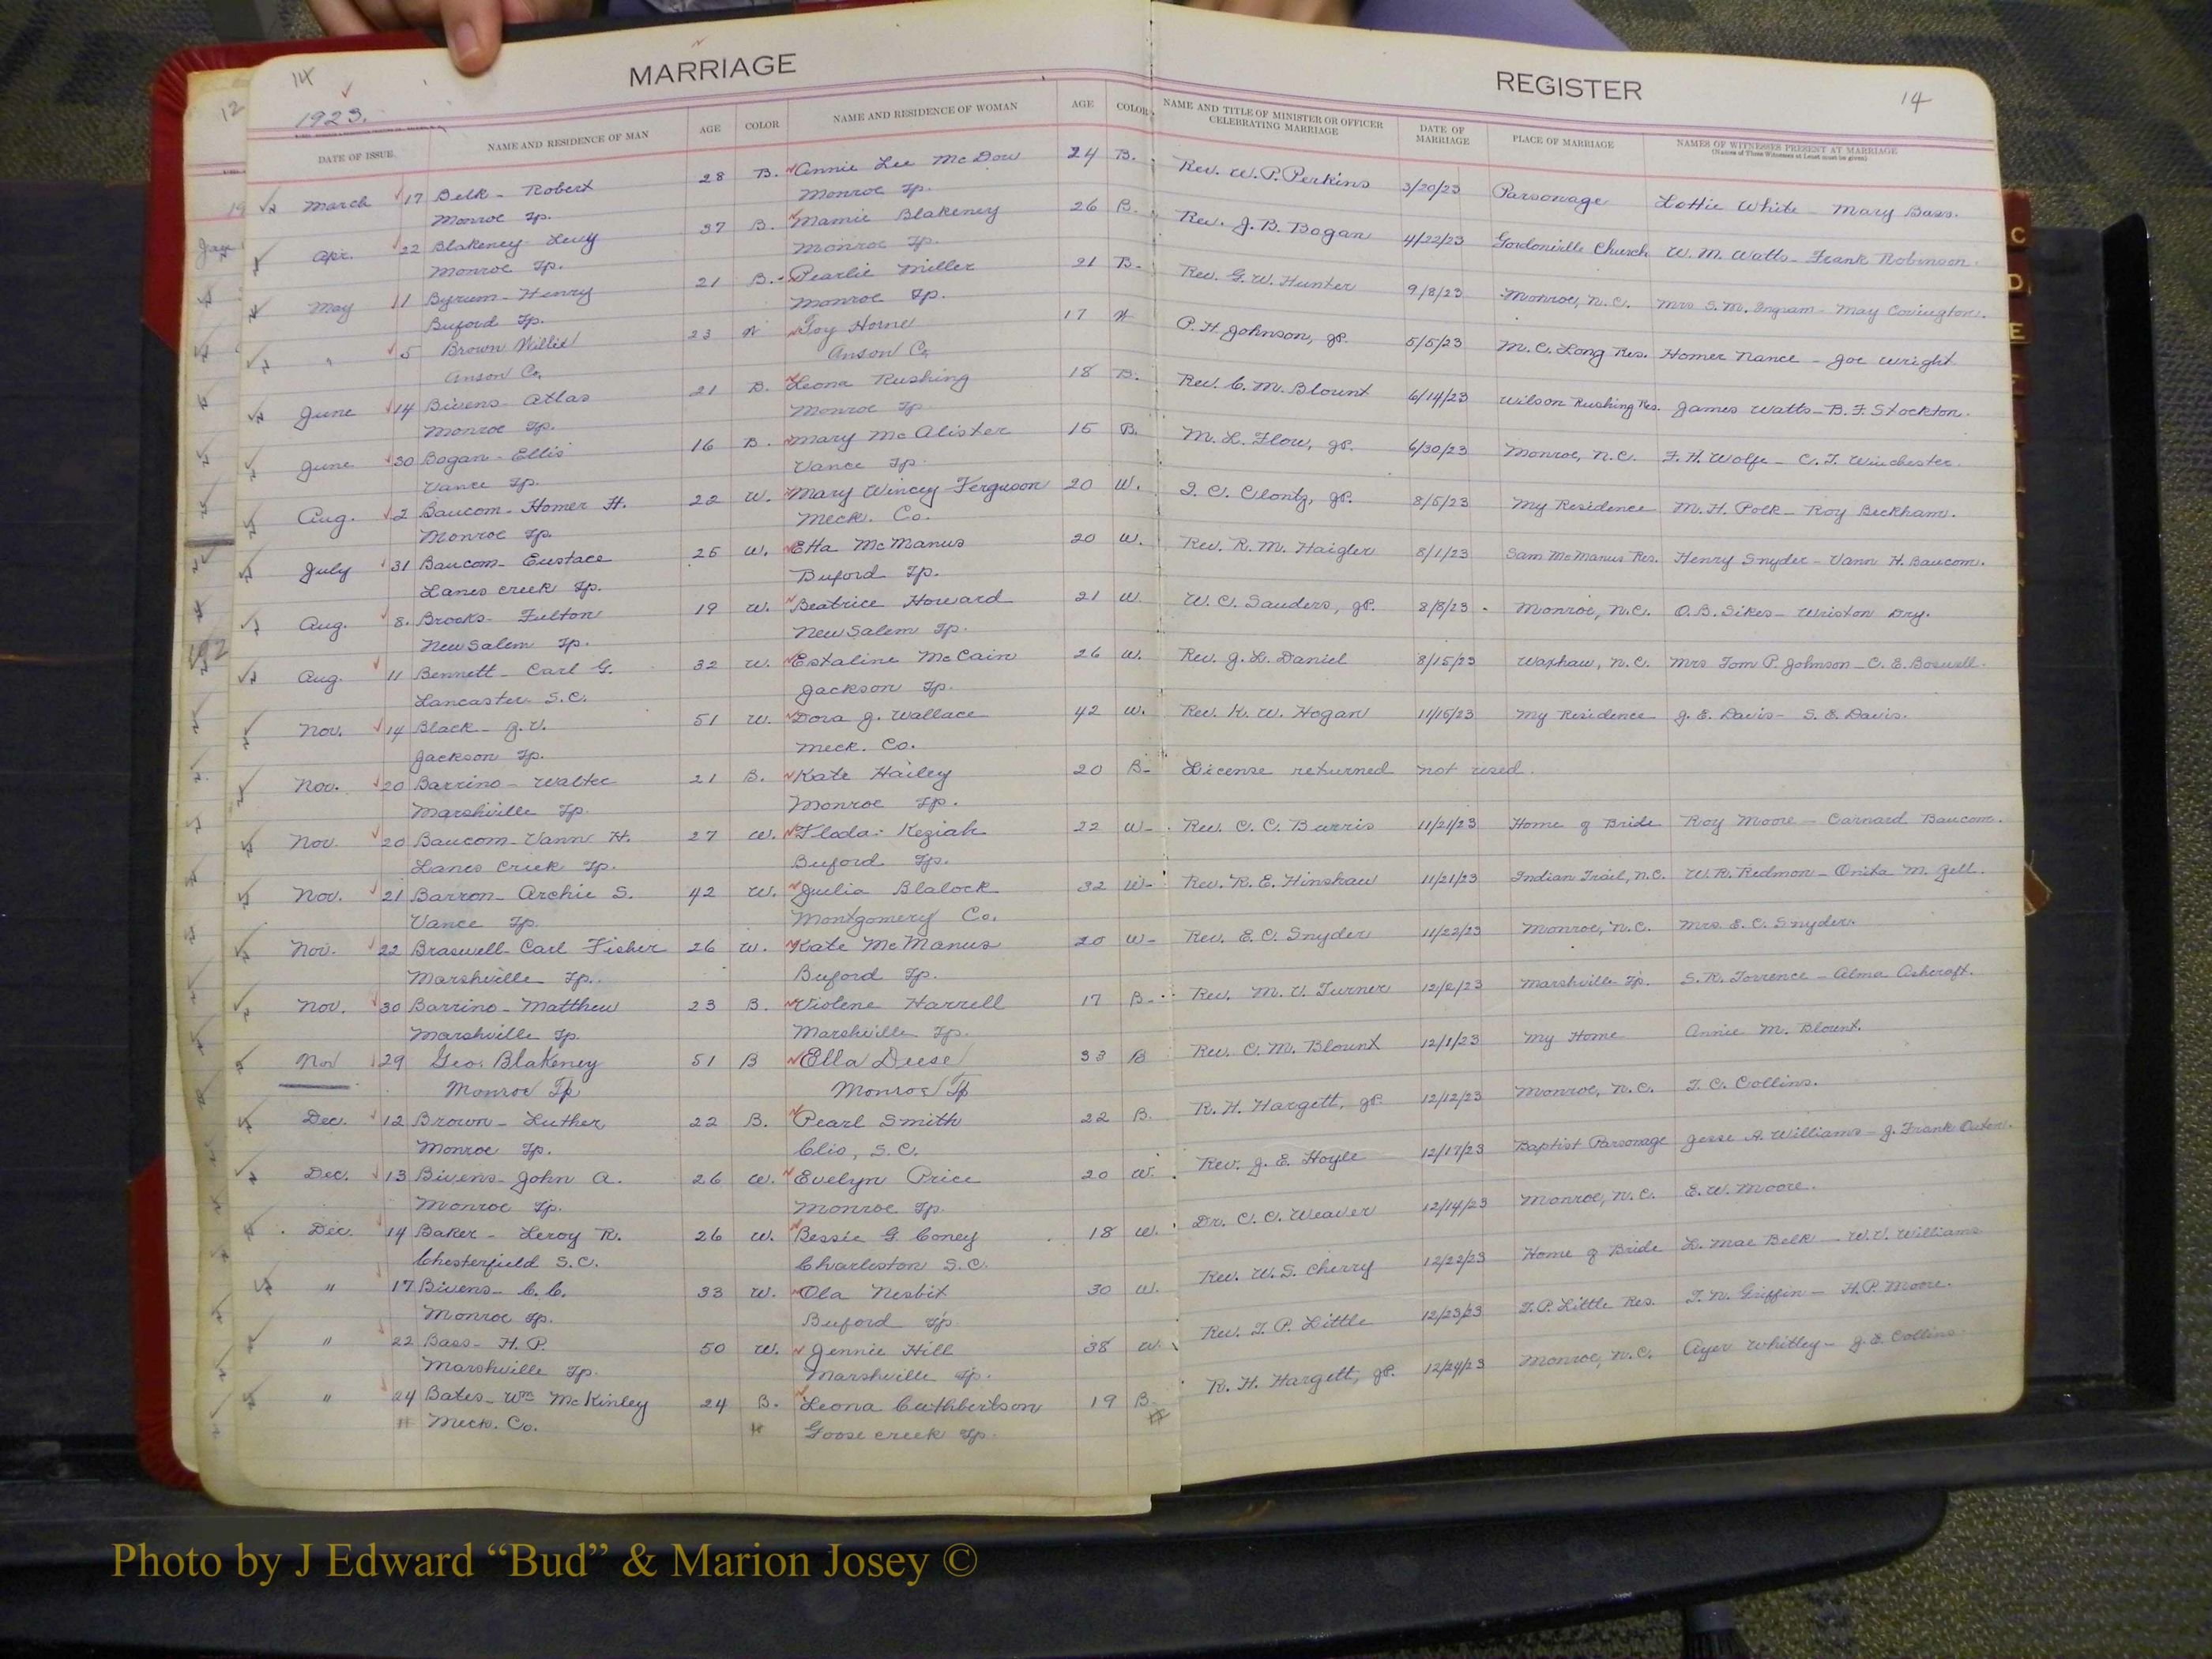 14
MARRIAGE
REGISTER
14
12
1923.
DATE OF ISSUE NAME AND RESIDENCE OF MAN AGE COLOR NAME AND RESIDENCE OF WOMAN AGE COLOR NAME AND TITLE OF MINISTER OR OFFICER CELEBRATING MARRIAGE DATE OF MARRIAGE PLACE OF MARRIAGE NAMES OF WITNESSES PRESENT AT MARRIAGE
(Names of Three Witnesses at Least must be given)
March 17 Belk - Robert 28 B. Annie Lee McDow 24 B. Rev. W. P. Perkins 3/20/23 Parsonage Lottie White - Mary Bass.
Monroe Tp. Monroe Tp.
Apr. 22 Blakeney - Levy 37 B. Mamie Blakeney 26 B. Rev. J. B. Bogan 4/22/23 Gordonville Church W. M. Watts - Frank Robinson.
Monroe Tp. Monroe Tp.
May 11 Byrum - Henry 21 B. Pearlie Miller 21 B. Rev. G. W. Hunter 9/8/23 Monroe, N.C. Mrs S. M. Ingram - May Covington.
Buford Tp. Monroe Tp.
" 5 Brown Willie 23 W Toy Horne 17 W P. H. Johnson, JP. 5/5/23 M. C. Long Res. Homer Nance - Joe Wright
Anson Co. Anson Co.
June 14 Bivens - Atlas 21 B. Leona Rushing 18 B. Rev. C. M. Blount 6/14/23 Wilson Rushing Res. James Watts - B. F. Stockton.
Monroe Tp. Monroe Tp
June 30 Bogan - Ellis 16 B. Mary McAlister 15 B. M. L. Flow, JP. 6/30/23 Monroe, N.C. F. H. Wolfe - C. T. Winchester.
Vance Tp. Vance Tp.
Aug. 2 Baucom - Homer H. 22 W. Mary Wincey Ferguson 20 W. I. C. Clontz, JP. 8/5/23 My Residence M. H. Polk - Roy Beckham.
Monroe Tp. Meck. Co.
July 31 Baucom - Eustace 25 W. Etta McManus 20 W. Rev. R. M. Haigler 8/1/23 Sam McManus Res. Henry Snyder - Vann H. Baucom.
Lanes creek Tp. Buford Tp.
Aug. 8. Brooks - Fulton 19 W. Beatrice Howard 21 W. W. C. Sanders, JP. 8/8/23 - Monroe, N.C. O. B. Sikes - Wriston Dry.
New Salem Tp. New Salem Tp.
Aug. 11 Bennett - Carl G. 32 W. Estaline McCain 26 W. Rev. J. L. Daniel 8/15/23 Waxhaw, N.C. Mrs Tom P. Johnson - C. E. Boswell.
Lancaster S.C. Jackson Tp.
Nov. 14 Black - J. V. 51 W. Dora J. Wallace 42 W. Rev. K. W. Hogan 11/15/23 My Residence J. E. Davis - S. E. Davis.
Jackson Tp. Meck. Co.
Nov. 20 Barrino - Walter 21 B. Kate Hailey 20 B. License returned not used.
Marshville Tp. Monroe Tp.
Nov. 20 Baucom - Vann H. 27 W. Floda Keziah 22 W. Rev. C. C. Burris 11/21/23 Home of Bride Roy Moore - Carnard Baucom.
Lanes Creek Tp. Buford Tp.
Nov. 21 Barron - Archie S. 42 W. Julia Blalock 32 W. Rev. R. E. Hinshaw 11/21/23 Indian Trail, N.C. W. R. Redmon - Onita M. Zell.
Vance Tp. Montgomery Co.
Nov. 22 Braswell - Carl Fisher 26 W. Kate McManus 20 W. Rev. E. C. Snyder 11/22/23 Monroe, N.C. Mrs. E. C. Snyder.
Marshville Tp. Buford Tp.
Nov. 30 Barrino - Matthew 23 B. Violene Harrell 17 B. Rev. M. V. Turner 12/2/23 Marshville Tp. S. R. Torrence - Alma Ashcraft.
Marshville Tp. Marshville Tp.
Nov 29 Geo. Blakeney 51 B Ella Deese 33 B Rev. C. M. Blount 12/1/23 My Home Annie M. Blount.
Monroe Tp Monroe Tp
Dec. 12 Brown - Luther 22 B. Pearl Smith 22 B. R. H. Hargett, JP. 12/12/23 Monroe, N.C. T. C. Collins.
Monroe Tp. Clio, S.C.
Dec. 13 Bivens - John A. 26 W. Evelyn Price 20 W. Rev. J. E. Hoyle 12/17/23 Baptist Parsonage Jesse A. Williams - J. Frank Outen.
Monroe Tp. Monroe Tp.
Dec. 14 Baker - Leroy R. 26 W. Bessie G Coney 18 W. Dr. C. C. Weaver 12/14/23 Monroe, N.C. E. W. Moore.
Chesterfield S.C. Charleston S.C.
" 17 Bivens - C. C. 33 W. Ola Nesbit 30 W. Rev. W. S. Cherry 12/22/23 Home of Bride L. Mae Belk - W. V. Williams
Monroe Tp. Buford Tp.
" 22 Bass - H. P. 50 W. Jennie Hill 38 W. Rev. T. P. Little 12/23/23 T. P. Little Res. T. N. Griffin - H. P. Moore.
Marshville Tp. Marshville Tp.
" 24 Bates - Wm McKinley 24 B. Leona Cuthbertson 19 B. R. H. Hargett, JP. 12/24/23 Monroe, N.C. Ayer Whitley - J. E. Collins.
Meck. Co. Goose creek Tp.
C
D
E
Photo by J Edward “Bud” & Marion Josey ©